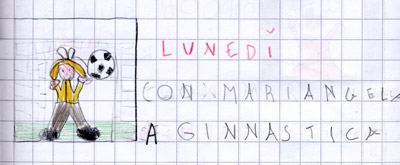 LUNEDÌ
CON MARIANGELA
A GINNASTICA